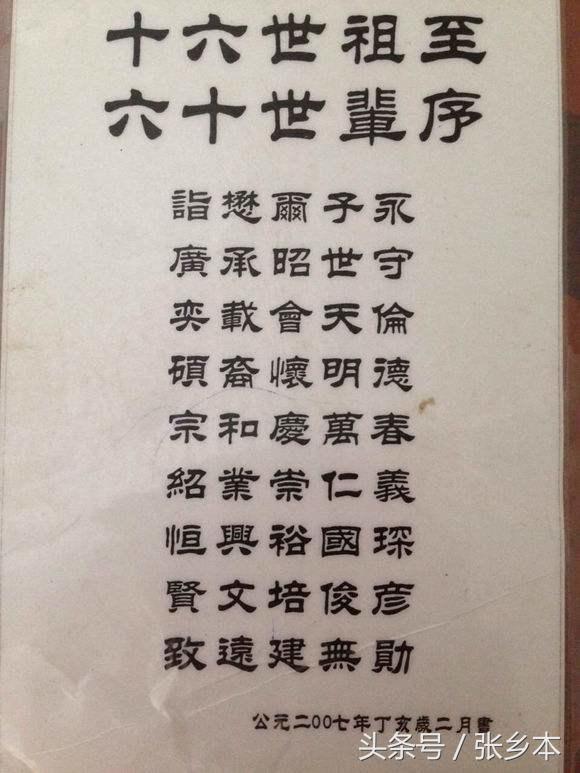 十六世祖至
六十世輩序
詣懋爾子永
廣承昭世守
奕載會天倫
碩裔懷明德
宗和慶萬春
紹業崇仁義
恒興裕國琛
賢文培俊彦
致遠建無勛
公元二00七年丁亥歲二月書
头条号/张乡本